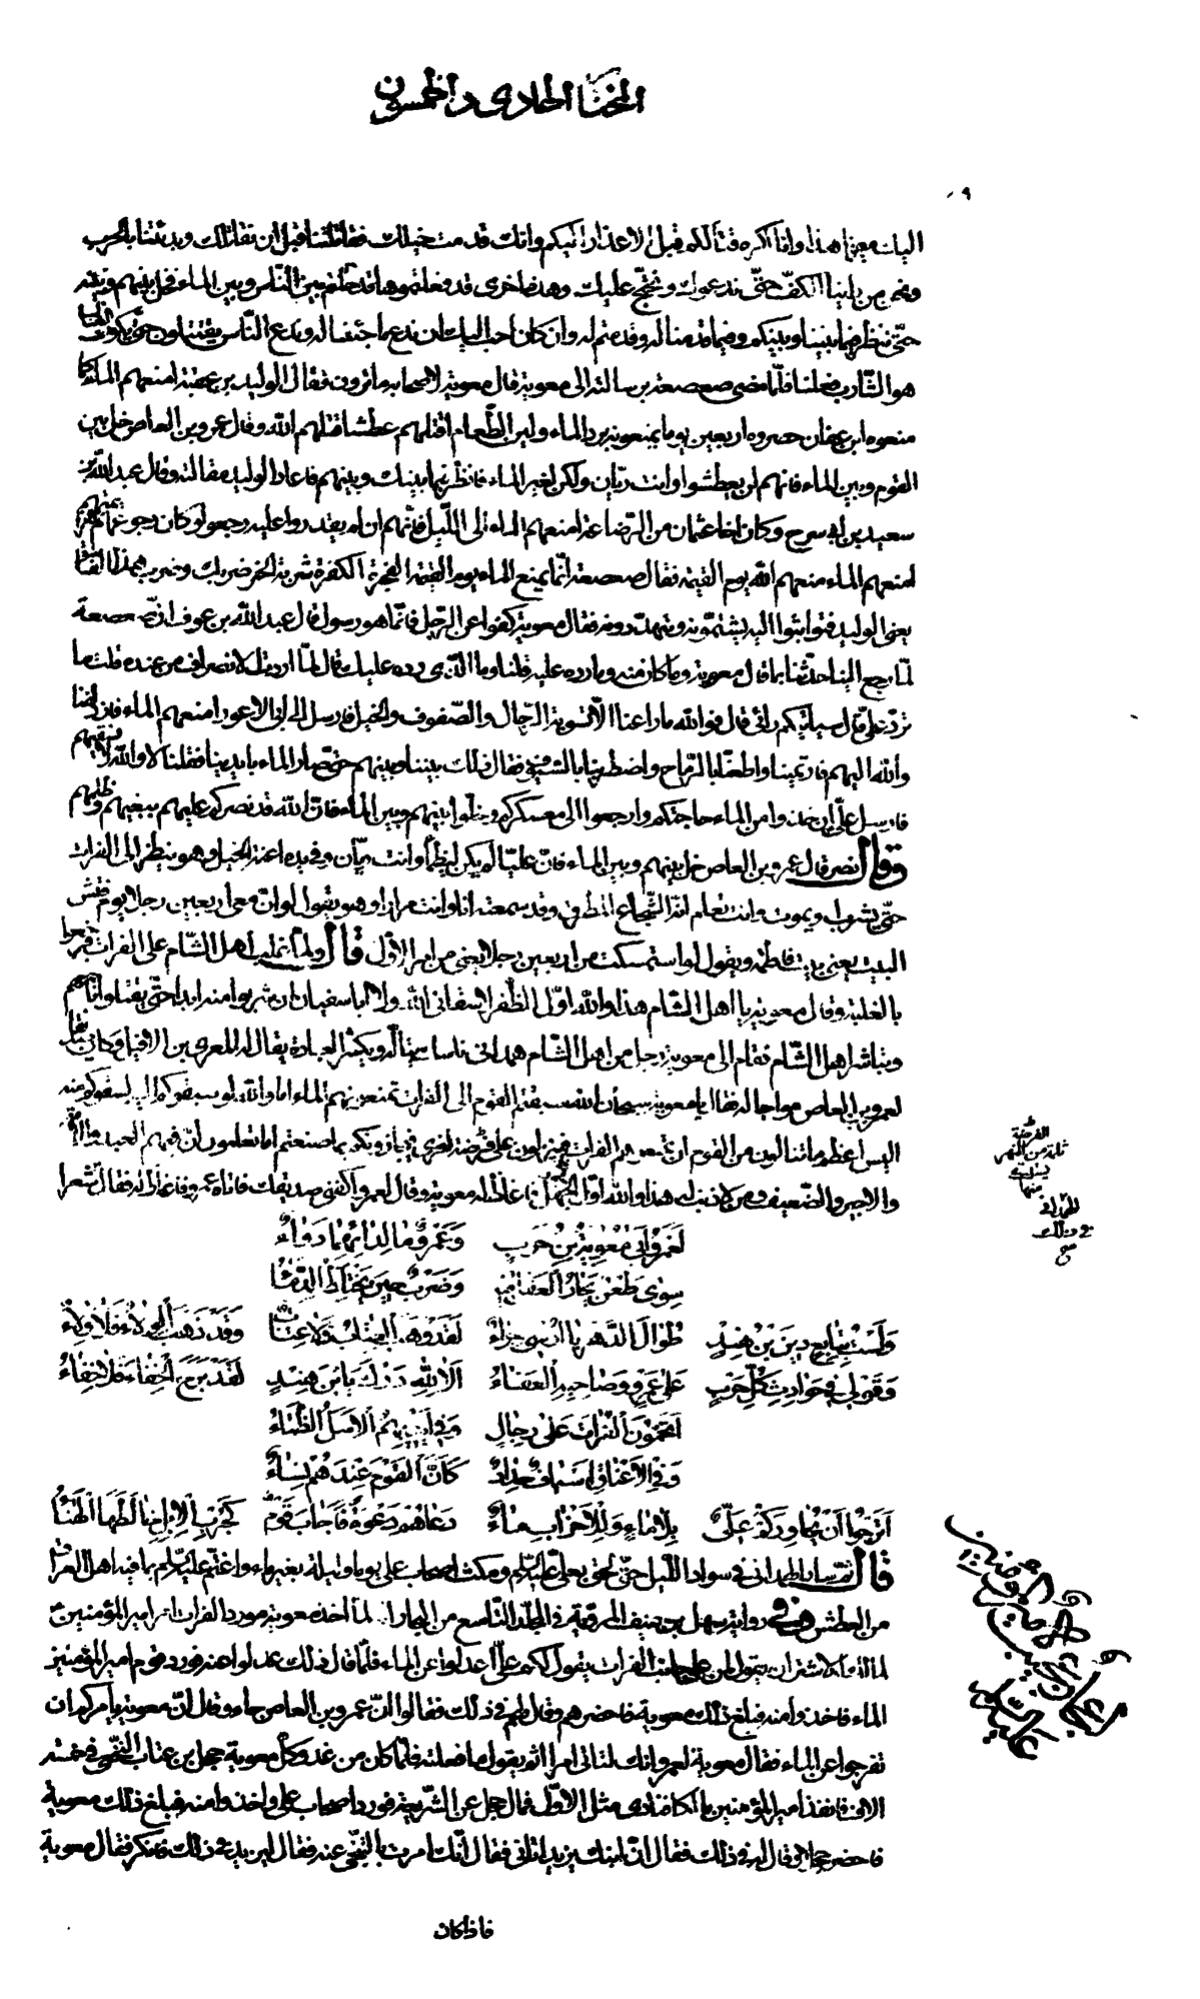 المختار الحادى والخمسون
٩
اليك مسيرنا هذا وانا اكره قتالكم قبل الاعذار اليكم وانك قدمت خيلك فقاتلتنا قبل ان نقاتلك وبدئتنا بالحرب
ونحن من راينا الكفّ حتّى ندعوك ونحتجّ عليك وهذه اخرى قد فعلتموها قد حلتم بين النّاس وبين الماء فخل بينهم وبينه
حتّى ننظر فيما بيننا وبينكم وفيما قدمنا له وقدمتم له وان كان احبّ اليك ان ندع ما جئنا له وندع النّاس يقتتلون حتّى يكون الغالب
هو الشّارب فعلنا فلمّا مضى صعصعة برسالته الى معوية قال معوية لاصحابه ما ترون فقال الوليد بن عقبة امنعهم الماء كما
منعوه ابن عفان حصروه اربعين يوما يمنعونه برد الماء ولين الطّعام اقتلهم عطشا قتلهم الله وقال عمرو بن العاص خل بين
القوم وبين الماء فانهم لن يعطشوا وانت ريّان ولكن لغير الماء فانظر فيما بينك وبينهم فاعاد الوليد مقالته وقال عبد الله بن
سعيد بن ابى سرح وكان اخا عثمان من الرّضاعة امنعهم الماء الى اللّيل فانّهم ان لم يقدروا عليه رجعوا وكان رجوعهم هزيمتهم
امنعهم الماء منعهم الله يوم القيمة فقال صعصعة انّما يمنع الماء يوم القيمة الفجرة الكفرة شربة الخمر ضربك وضرب هذا الفاسق
يعنى الوليد فتواثبوا اليه يشتمونه ويتهدّدونه فقال معوية كفوا عن الرّجل فانّما هو رسول قال عبد الله بن عوف انّ صعصعة
لمّا رجع الينا حدّثنا بما قال معوية وما كان منه وما رده عليه قلنا وما الّذى رده عليك قال لمّا اردت الانصراف من عنده قلت ما
تردّ علىّ قال سياتيكم رائى قال فوالله ما راعنا الّا تسوية الرّجال والصّفوف والخيل فارسل الى ابى الاعور امنعهم الماء فازدلفنا
والله اليهم فارتمينا واطعنّا بالرّماح واضطربنا بالسّيوف فقال ذلك بيننا وبينهم حتّى صار الماء بايدينا فقلنا لا والله لا نسقيهم
فارسل علىّ ان خذوا من الماء حاجتكم وارجعوا الى معسكركم وخلّوا بينهم وبين الماء فانّ الله قد نصركم عليهم ببغيهم وظلمهم
وقال نصر قال عمرو بن العاص خل بينهم وبين الماء فانّ عليّا لم يكن ليظمأ وانت ريّان وفى يده اعنة الخيل وهو ينظر الى الفرات
حتّى يشرب او يموت وانت تعلم انّه الشّجاع المطرق وقد سمعته انا وانت مرارا وهو يقول لو انّ معى اربعين رجلا يوم فتش
البيت يعنى بيت فاطمة ويقول لو استمسكت من اربعين رجلا يعنى من امر الاوّل قال ولمّا تغلب اهل الشّام على الفرات فرحوا
بالغلبة وقال معوية يا اهل الشّام هذا والله اوّل الظّفر لا سقانى الله ولا ابا سفيان ان شربوا منه ابدا حتّى يقتلوا باجمعهم
وتباشر اهل الشّام فقام الى معوية رجل من اهل الشّام همدانى ناسك يتألّه ويكثر العبادة يقال له المعرى بن الاقبل وكان
لعمرو بن العاص مواخيا له فقال يا معوية سبحان الله سبقتم القوم الى الفرات تمنعونهم الماء اما والله لو سبقوكم اليه لسقوكم منه
اليس اعظم ما تنالون من القوم ان تمنعوهم الفرات فينزلون على فرضة اخرى فيجازونكم بما صنعتم اما تعلمون انّ فيهم العبد والامة
والاجير والضّعيف ومن لا ذنب له هذا والله اوّل الجهل فاغلظ له معوية وقال لعمرو اكفنى صديقك فاتاه عمرو فاغلظ له فقال شعرا
لَعَمْرُ اَبى مُعٰوِيَةَ بْنِ حَرْبٍ وَعَمْرٍو مٰا لِدائِهِمٰا دَوٰاءٌ
سِوٰى طَعْنٍ يَحٰارُ الْعَقْلُ فيهِ وَضَرْبٍ حينَ يَخْتَلِطُ الدِّمٰاءُ
وَلَسْتُ بِتٰابِعٍ دينَ بْنِ هِنْدٍ طُوٰالَ الدَّهْرِ مٰا اَرْسٰى حِرٰاءٌ لَقَدْ ذَهَبَ الْعِتٰابُ فَلٰا عِتٰابٌ وَقَدْ ذَهَبَ الْوِلٰاءُ فَلٰا وِلٰاءُ
وَقَوْلى فى حَوٰادِثِ كُلِّ حَرْبٍ عَلٰى عَمْرٍو وَصٰاحِبِهِ الْعَفٰاءُ اَلٰا لِلّٰهِ دَرُّكَ يَا بْنَ هِنْدٍ لَقَدْ بَرِحَ الْخِفٰاءُ فَلٰا خِفٰاءُ
اَتَحْمُونَ الْفُرٰاتَ عَلٰى رِجٰالٍ وَفى اَيْديهِمُ الْاَسَلُ الظِّمٰاءُ
وَفِى الْاَعْنٰاقِ اَسْيٰافٌ حِدٰادٌ كَاَنَّ الْقَوْمَ عِنْدَهُمْ نِسٰاءٌ
اَتَرْجُو اَنْ يُجٰاوِرَكُمْ عَلِىٌّ بِلٰا مٰاءٍ وَلِلْاَحْزٰابِ مٰاءٌ دَعٰاهُمْ دَعْوَةً فَاَجٰابَ قَوْمٌ كَجُرْبِ الْاِبِلِ خٰالَطَهَا الْهَنٰاءُ
قال ثمّ سار الهمدانى فى سواد اللّيل حتّى لحق بعلىّ عليه السّلم ومكث اصحاب على يوما وليلة بغير ماء واغتمّ عليه السّلم بما فيه اهل العراق
من العطش وفى رواية سهل بن حنيف المروية فى المجلّد التّاسع من البحار لمّا اخذ معوية مورد الفرات امر امير المؤمنين
لمالك الاشتر ان يقول لمن على جانب الفرات يقول لكم علىّ اعدلوا عن الماء فلمّا قال ذلك عدلوا عنه فورد قوم امير المؤمنين
الماء فاخذوا منه فبلغ ذلك معوية فاحضرهم وقال لهم فى ذلك فقالوا انّ عمرو بن العاص جاء وقال انّ معوية يأمركم ان
تفرجوا عن الماء فقال معوية لعمرو انك لتأتى امرا ثم يقول ما فعلته فلمّا كان من غد وكّل معوية حجل بن عتاب النّخعى فى خمسة
الاف فانفذ امير المؤمنين مالكا فنادى مثل الاوّل فمال حجل عن الشّريعة فورد اصحاب على واخذوا منه فبلغ ذلك معوية
فاحضر حجلا وقال له فى ذلك فقال انّ ابنك يزيد اتانى فقال انّك امرت بالتّنحّى عنه فقال ليزيد فى ذلك فانكر فقال معوية
الفرضة
ثلمة من النّهر
يستقى
منها
فاذا كان